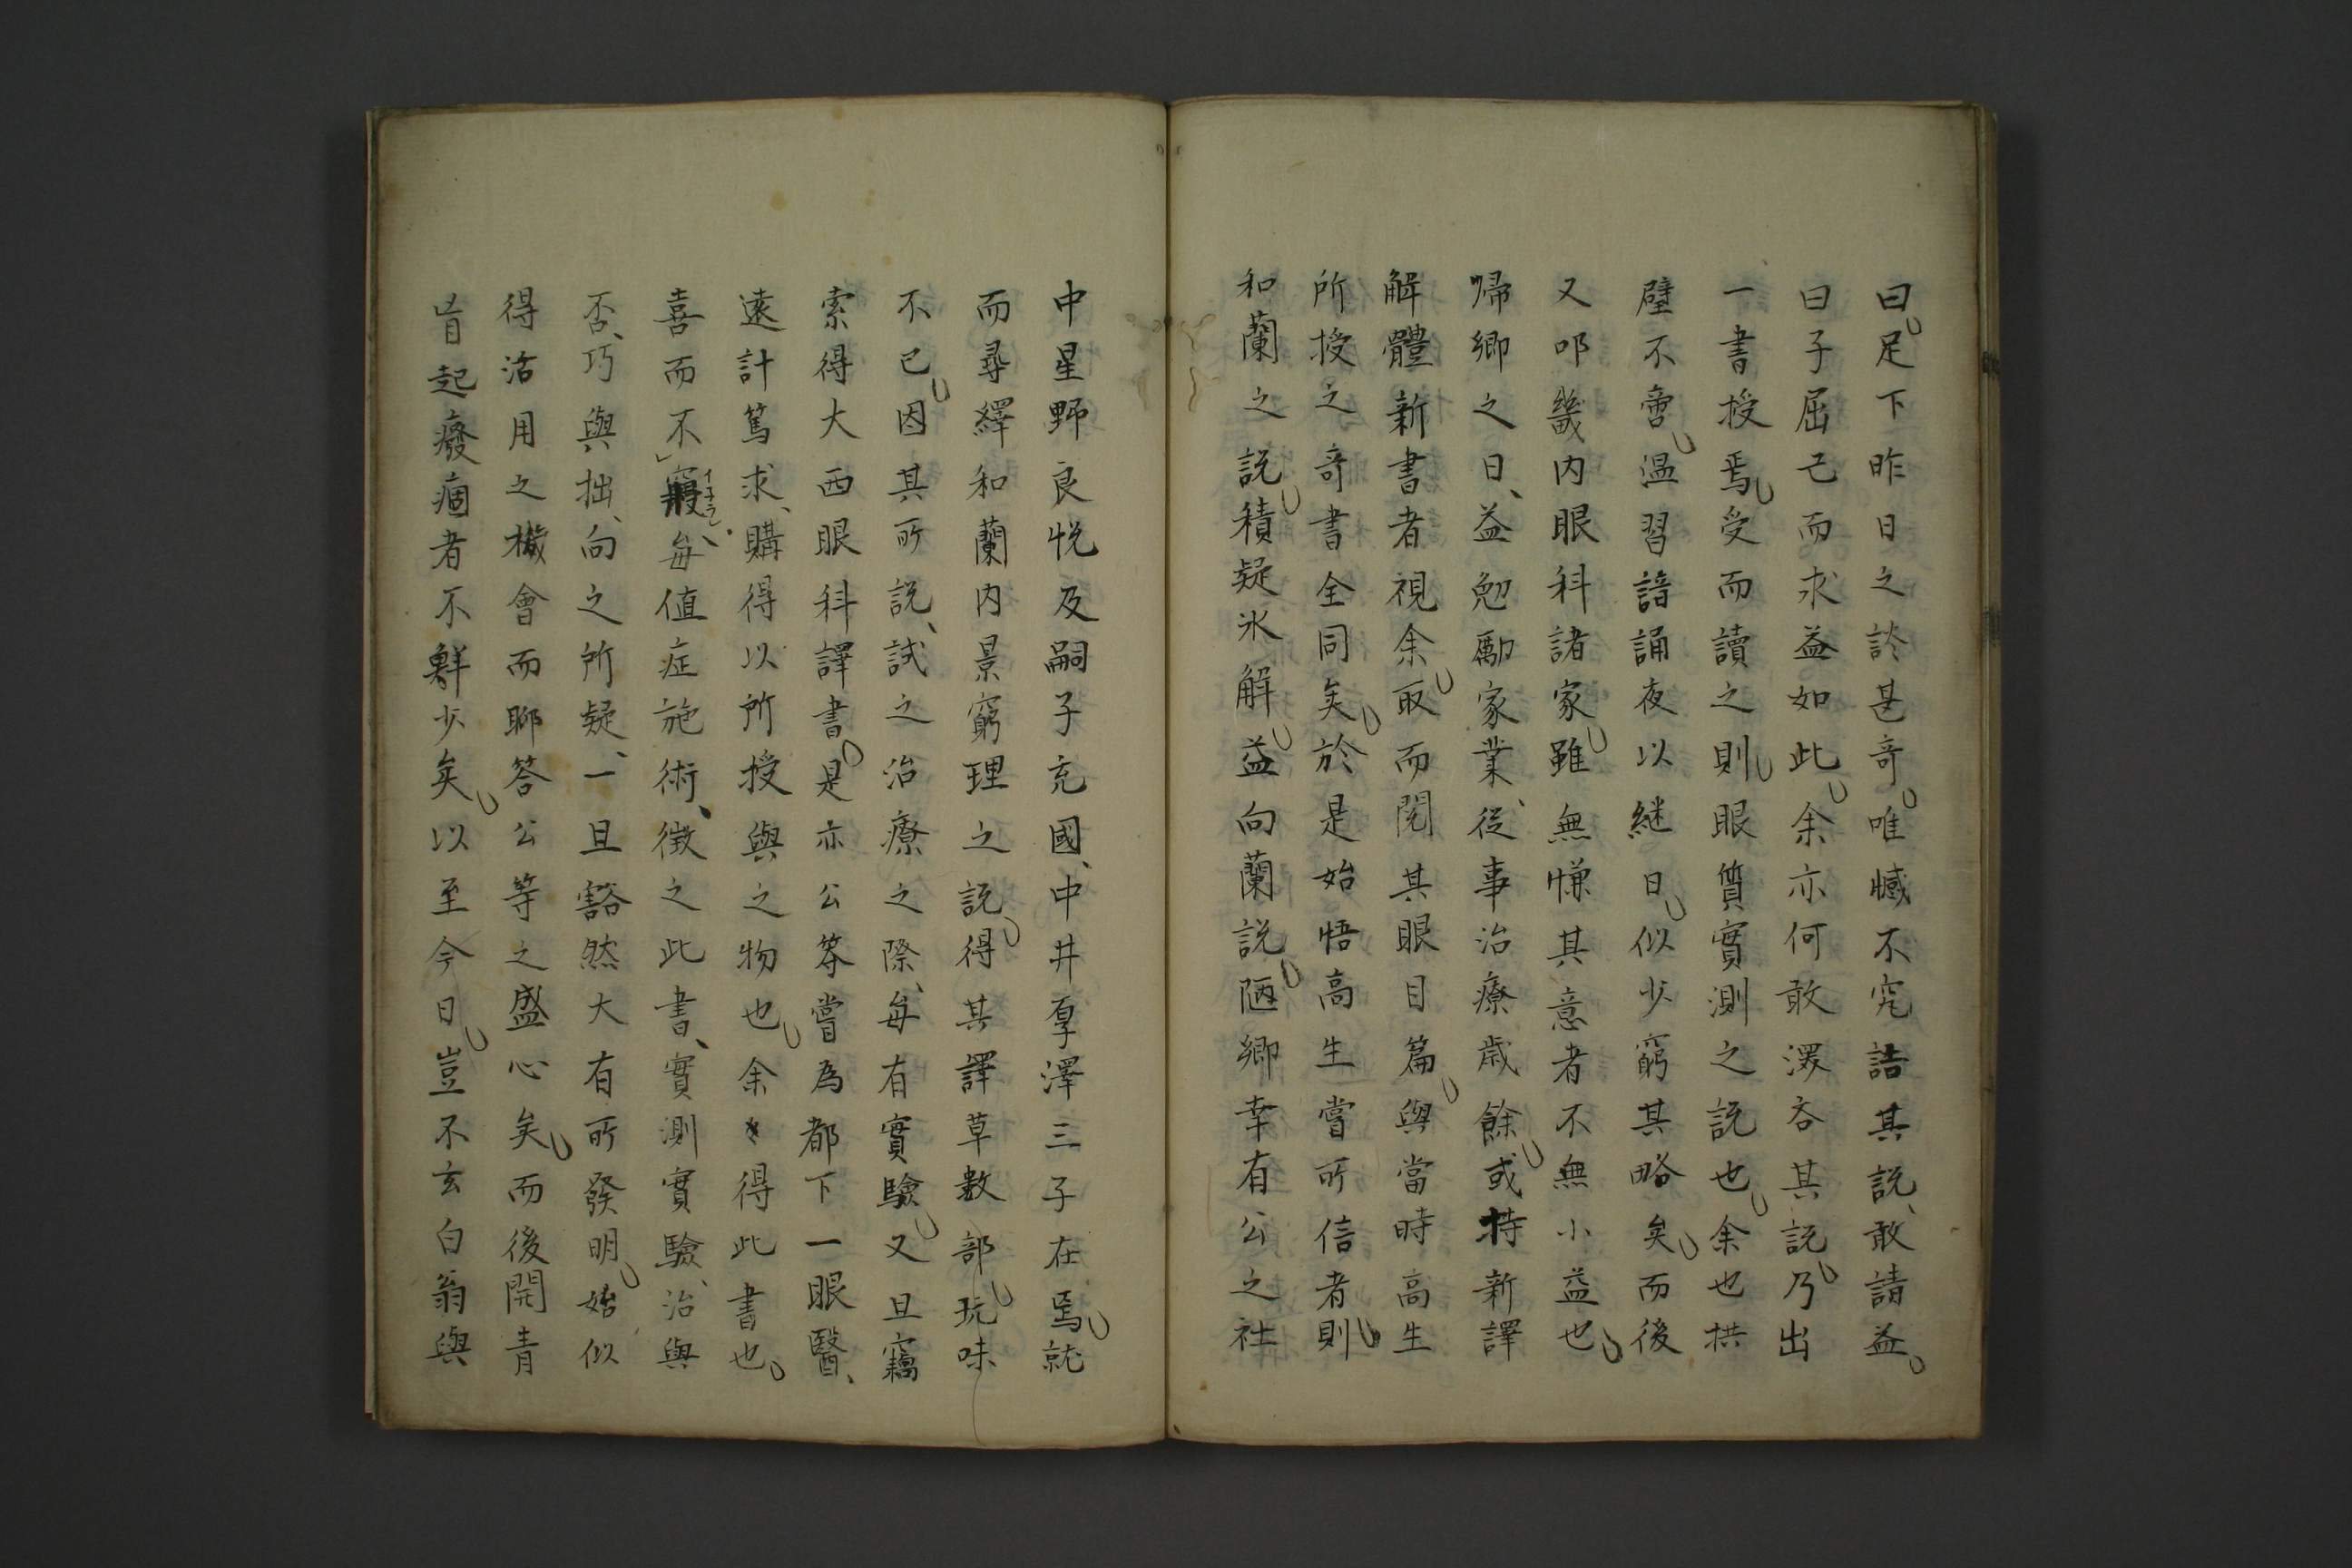 曰足下昨日之談甚奇唯憾不究詰其説、敢請益
曰子屈己而求益如此余亦何敢深吝其説乃出
一書授焉受而讀之則眼質實測之説也余也拱
璧不啻温習諳誦夜以継日似少窮其略矣而後
又叩畿内眼科諸家雖無慊其意者不無小益也
帰郷之日、益勉勵家業、従事治療歳餘或持新譯
解體新書者視余取而閲其眼目篇與當時高生
所授之奇書全同矣於是始悟高生嘗所信者則
和蘭之説積疑氷解益向蘭説陋郷幸有公之社
中星野良悦及嗣子充國、中井厚澤三子在焉就
而尋繹和蘭内景窮理之説得其譯草數部玩味
不已因其所説、試之治療之際、毎有實驗又且竊
索得大西眼科譯書是亦公等嘗為都下一眼醫、
遠計篤求、購得以所授與之物也余得此書也
喜而不寢イネラレ、毎値症施術、徴之此書、實測實驗、治與
否、巧與拙、向之所疑、一旦豁然大有所發明始似
得活用之機會而聊答公等之盛心矣而後開青
盲起癈痼者不鮮少矣以至今日豈不玄白翁與